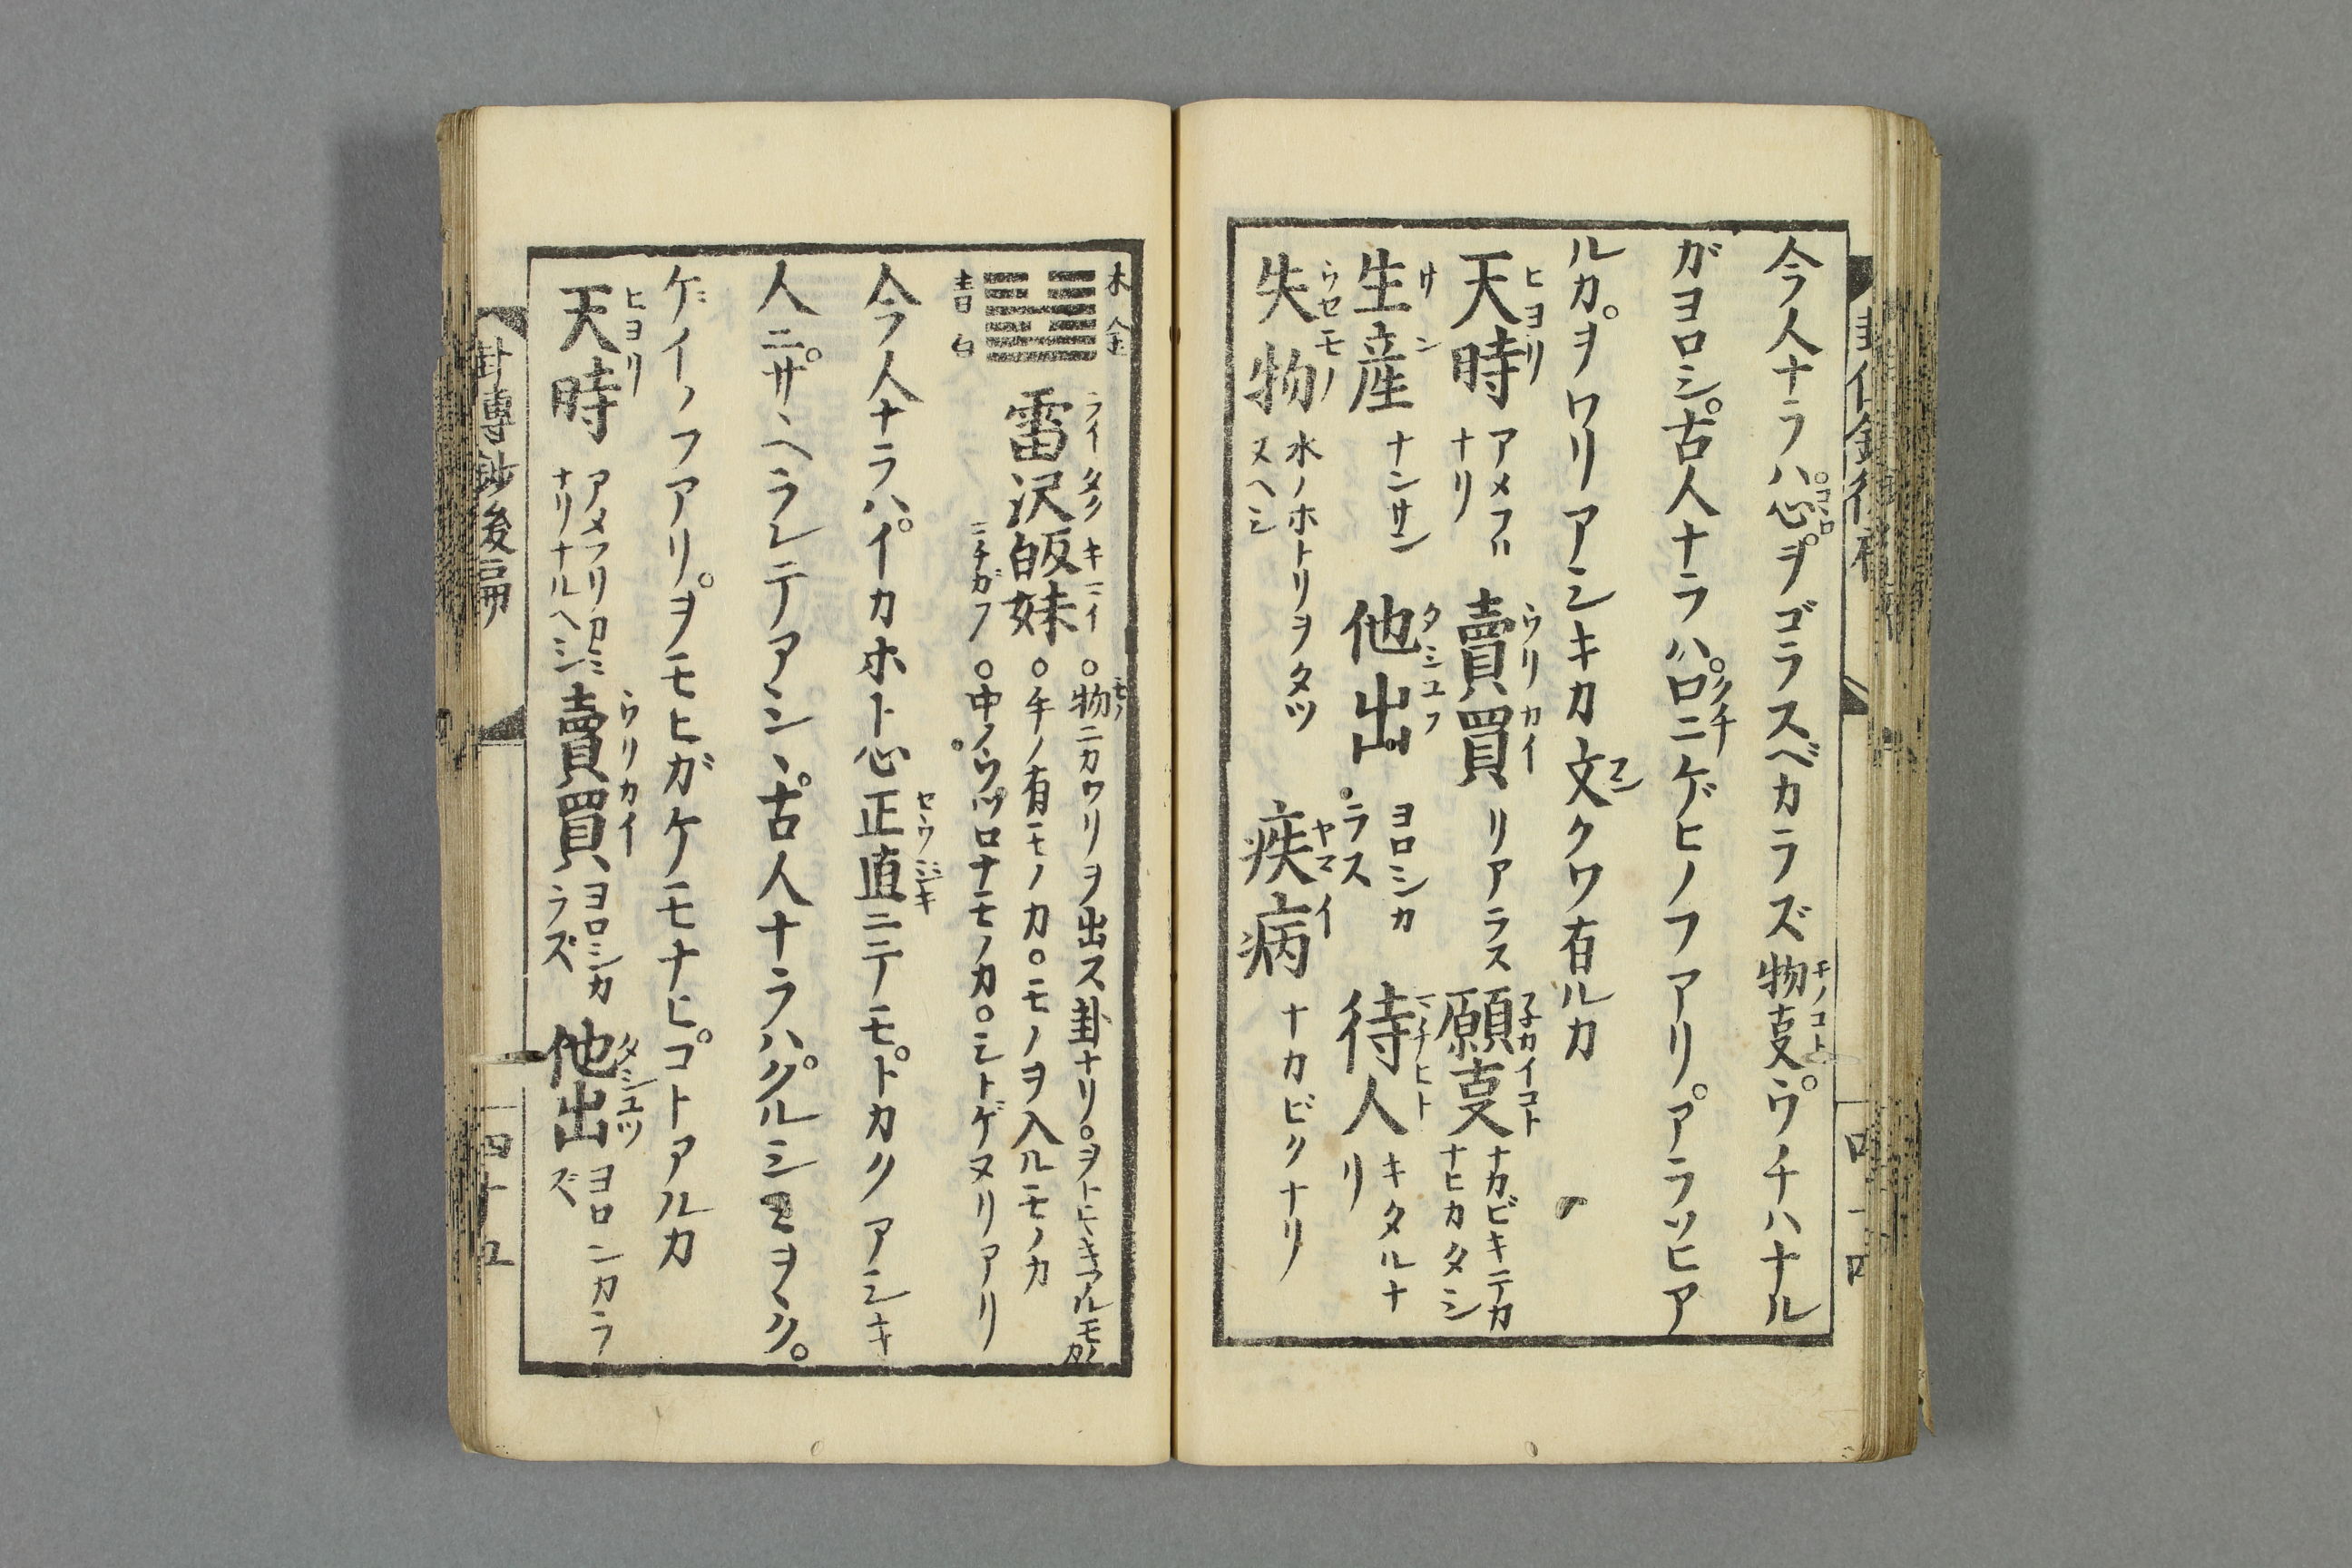 今人ナラハ。心ヲゴラスベカラズ物㕝。ウチハナル
ガヨロシ。古人ナラハ。口ニゲヒノフアリ。アラソヒア
ルカ。ヲワリアシキカ文クワ有ルカ
天時 アメフリ ナリ 賣買 リアラス 願㕝 ナカビキテカ ナヒカタシ
生産 ナンサン 他出 ヨロシカ ラス 待人 キタルナ リ
失物 水ノホトリヲタツ ヌヘシ 疾病 ナカビクナリ
木 金
青 白
雷沢皈妹
○物ニカワリヲ出ス卦ナリ○ヲトヒキアルモノカ
○年ノ有モノカ○モノヲ入ルモノカ
ニチガフ ○中ノウツロナモノカ○シトゲヌリアリ
今人ナラハ。イカホト心正直ニテモ。トカクアシキ
人ニ。サヘヘラレテアシヽ。古人ナラハ。クルシミヲヽク。
ゲイノフアリ。ヲモヒガケモナヒ。コトアルカ
天時 アメフリカミ ナリナルヘシ 賣買 ヨロシカ ラズ 他出 ヨロシカラ ズ
卦傳鈔後扁
四十五